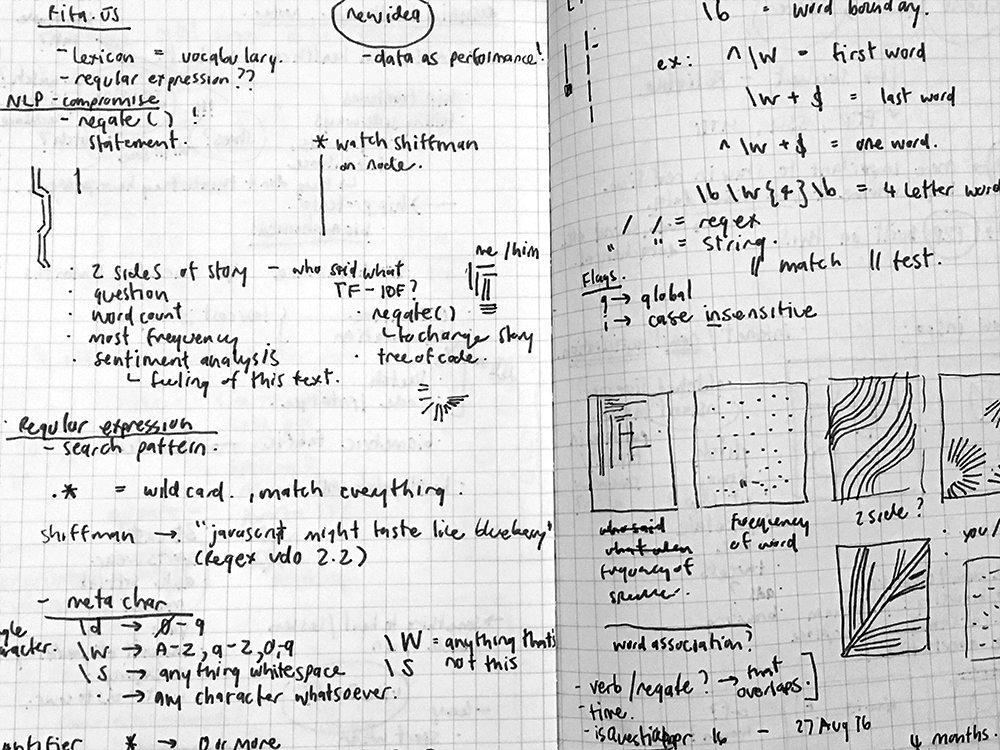 Rita.js
new idea
- Lexicon = vocabulary.
- data as performance!
- regular expression??
NLP - compromise
- negate() !
statement.
* watch shiffman
on node.
me/him
· 2 sides of story - who said what
TF-IDF?
· question
· word count
· negate()
↳ to change story
· most frequency
· sentiment analysis
· tree of code.
↳ feeling of this text.
· Regular expression
- search pattern.
.* = wildcard, match everything.
shiffman → "javascript might taste like blueberry"
(Regex vdo 2.2)
- meta char
\d → 0-9
\w → A-Z, a-z, 0-9
\W = anything that's
not this
\s → anything whitespace
\S
. → any character whatsoever.
* → 0 or more
\b = word boundary.
ex: ^\w = first word
\w+$ = last word
^\w+$ = one word.
\b\w{4}\b = 4 letter word
/ / = regex
" " = string.
// match // test.
Flags.
g → global
i → case insensitive
who said
what when
frequency of
speaker
frequency
of word
2 side?
you/
word association?
- verb/negate? → that
overlaps.
- time.
16 - 27 Aug 16
4 months.